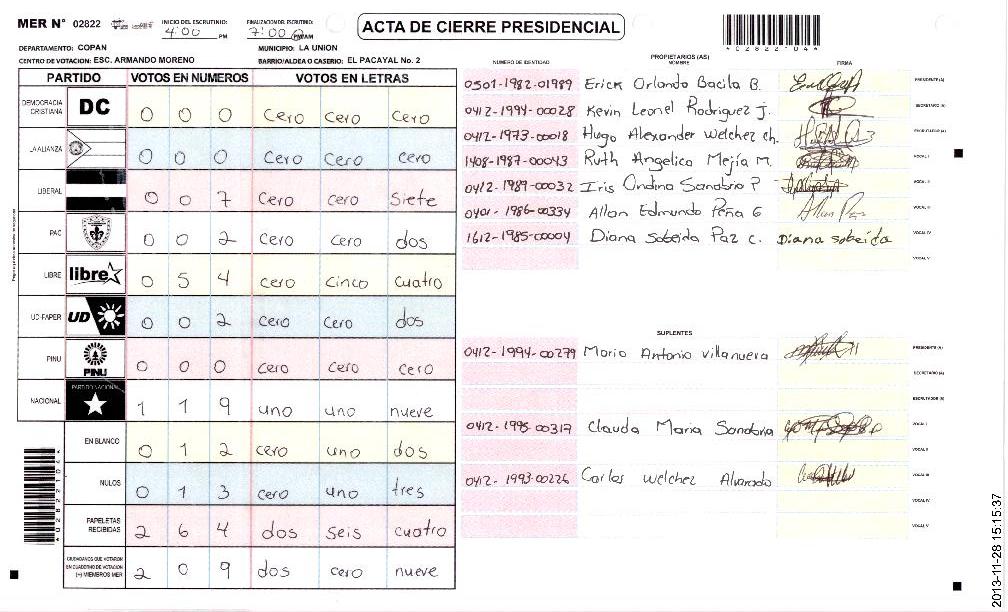 MER N° 02822
INICIO DEL ESCRUTINIO:
4:00 PM
FINALIZACION DEL ESCRUTINIO:
7:00 PM AM
ACTA DE CIERRE PRESIDENCIAL
DEPARTAMENTO: COPAN
MUNICIPIO: LA UNION
CENTRO DE VOTACION: ESC. ARMANDO MORENO
BARRIO/ALDEA O CASERIO: EL PACAYAL No. 2
PARTIDO VOTOS EN NUMEROS VOTOS EN LETRAS
DEMOCRACIA CRISTIANA DC 0 0 0 cero cero cero
LA ALIANZA 0 0 0 cero cero cero
LIBERAL 0 0 7 cero cero siete
PAC 0 0 2 cero cero dos
LIBRE libre 0 5 4 cero cinco cuatro
UD-FAPER UD 0 0 2 cero cero dos
PINU PINU 0 0 0 cero cero cero
NACIONAL PARTIDO NACIONAL 1 1 9 uno uno nueve
EN BLANCO 0 1 2 cero uno dos
NULOS 0 1 3 cero uno tres
PAPELETAS RECIBIDAS 2 6 4 dos seis cuatro
CIUDADANOS QUE VOTARON EN CUADERNO DE VOTACION (+) MIEMBROS MER 2 0 9 dos cero nueve
PROPIETARIOS (AS)
NUMERO DE IDENTIDAD NOMBRE FIRMA
0501-1982-01989 Erick Orlando Bacila B. PRESIDENTE (A)
0412-1994-00028 Kevin Leonel Rodriguez J. SECRETARIO (A)
0412-1973-00018 Hugo Alexander Welchez ch. ESCRUTADOR (A)
1408-1987-00043 Ruth Angelica Mejía M. VOCAL I
0412-1989-00032 Iris Ondina Sanabria P VOCAL II
0401-1986-00334 Allan Edmundo Peña G VOCAL III
1612-1985-00004 Diana sobeida Paz c. Diana sobeida VOCAL IV
VOCAL V
SUPLENTES
0412-1994-00279 Mario Antonio villanueva PRESIDENTE (A)
SECRETARIO (A)
ESCRUTADOR (A)
0412-1995-00317 Clauda Maria Sanabria VOCAL I
VOCAL II
0412-1993-00226 Carlos welchez Alvarado VOCAL III
VOCAL IV
VOCAL V
4028221044
4028221044
2013-11-28 15:15:37